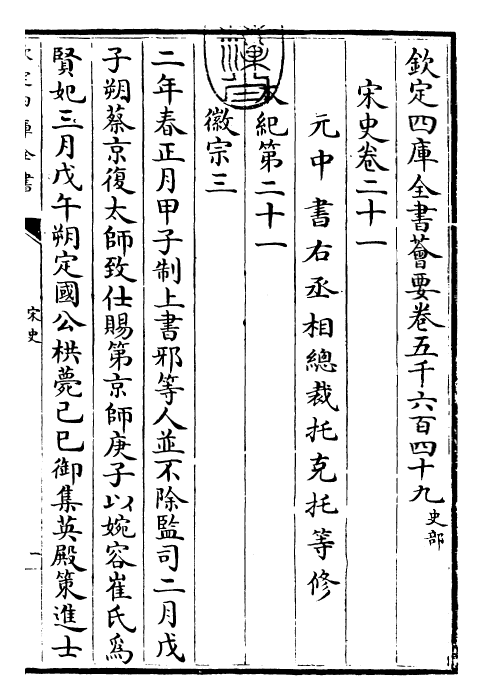 欽定四庫全書薈要卷五千六百四十九 史部
宋史卷二十一
元中書右丞相總裁托克托等修
本紀第二十一
徽宗三
二年春正月甲子制上書邪等人並不除監司二月戊
子朔蔡京復太師致仕賜第京師庚子以婉容崔氏為
賢妃三月戊午朔定國公栱薨己巳御集英殿策進士
欽定四庫全書
宋史
一